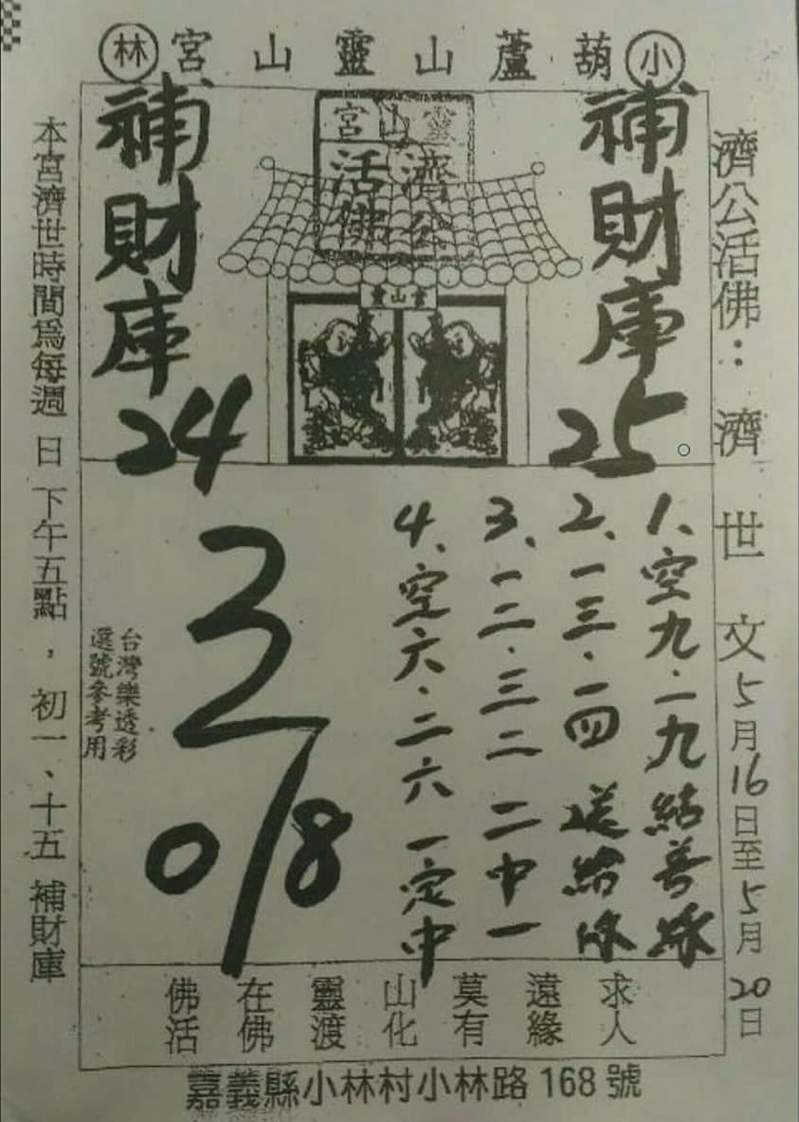 小葫蘆山靈山宮林
濟公活佛：濟世文5月16日至5月20日
補財庫
25
靈山宮
濟公
活佛
補財庫
24
1、空九·一九結善緣
2、一三·一四送給你
3、一二·三二二中一
4、空六·二六一定中
0/8
台灣樂透彩
選號參考用
本宮濟世時間為每週日下午五點，初一、十五補財庫
佛在靈山莫遠求
活佛渡化有緣人
嘉義縣小林村小林路168號